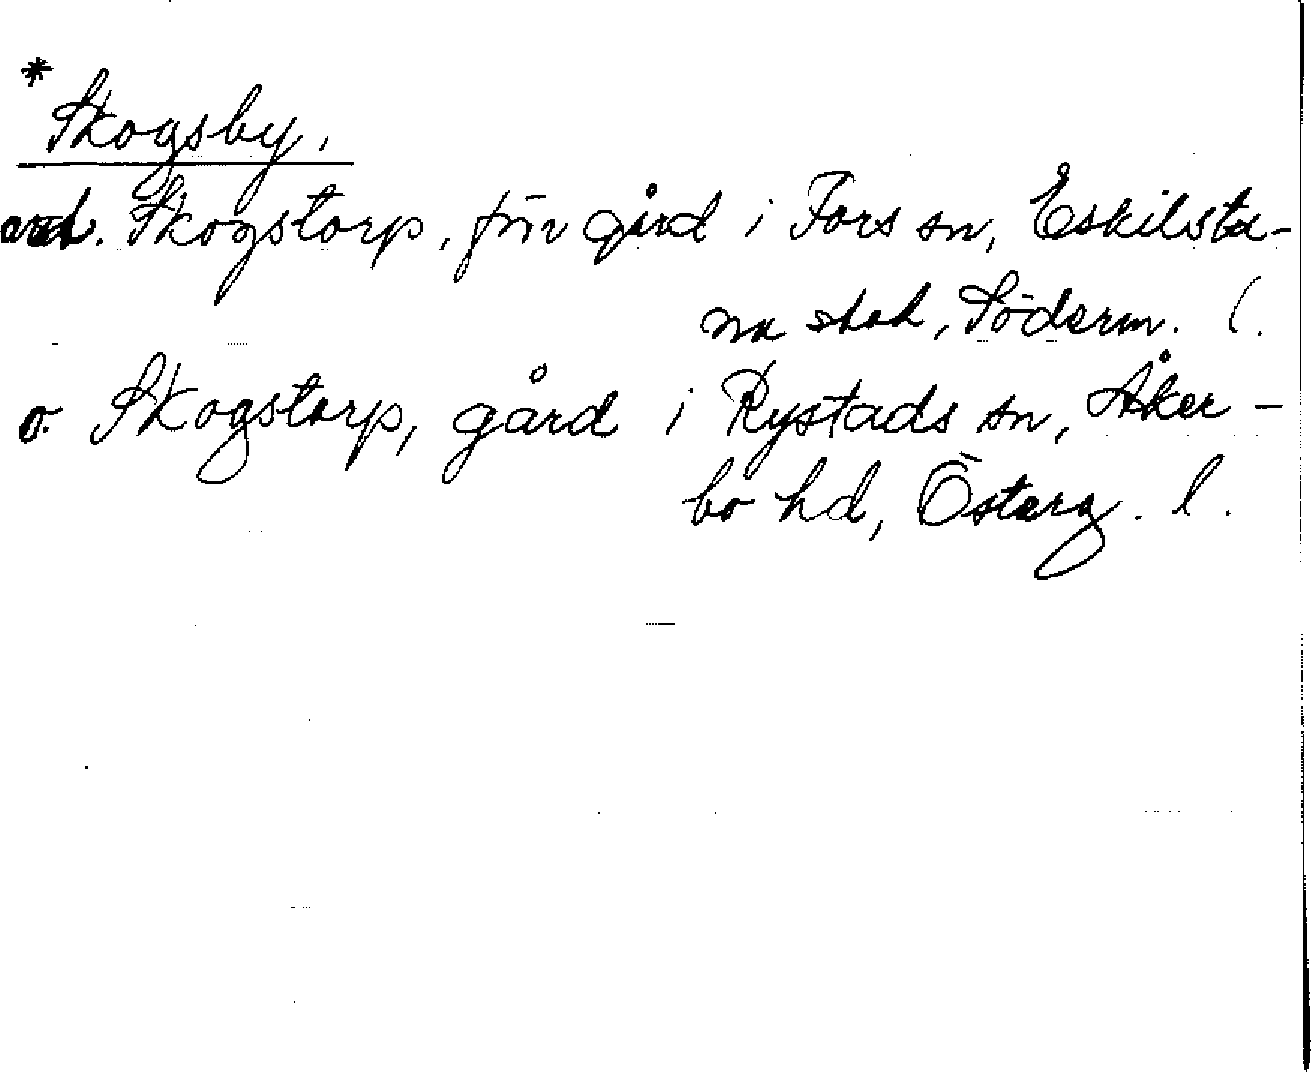 * Skogsby.
Skogstorp, förr gård i Fors sn, Eskilstu-
na stad, Söderm. l.
o. Skogstorp, gård i Rystads sn, Åker-
bo hd, Österg. l.